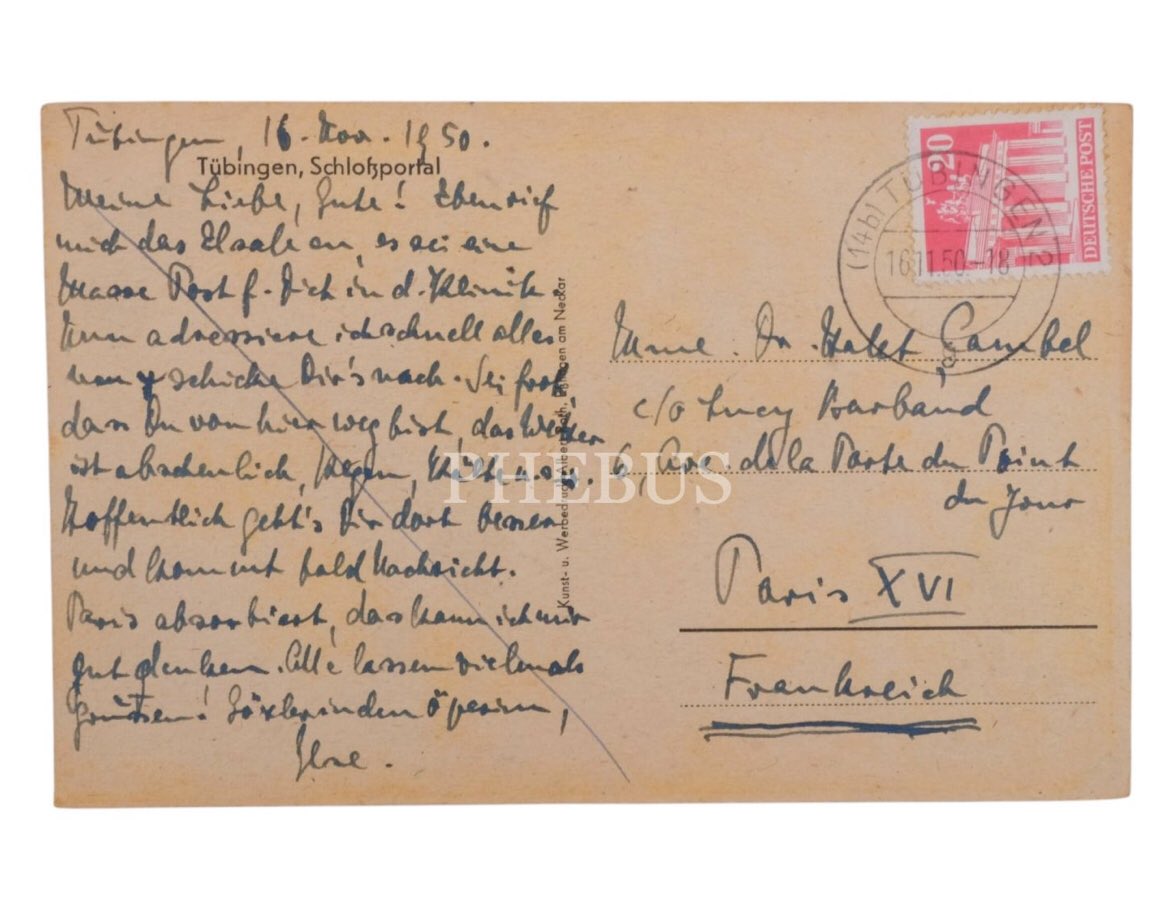 Tübingen, 16. Nov. 1950.
Tübingen, Schloßportal
Meine Liebe, Gute! Eben rief
mich das an, es sei eine
Masse Post f. Dich in d. Klinik.
Nun adressiere ich schnell alles
schicke Dir's nach. Sei froh
dass Du von hier weg bist, das Wetter
ist abscheulich, Regen, Kälte
Hoffentlich geht's Dir dort besser
und kommt bald Nachricht.
Paris absorbiert, das kann ich mir
gut denken. Alle lassen vielmals
grüssen! Gözlerinden öperim,
Else.
Kunst- u. Werbedruck Tübingen am Neckar
20
DEUTSCHE POST
(14b) TÜBINGEN 2
16.11.50-18
a
Mme. Dr. Halet Çambel
c/o Lucy Barband
6, Ave. de la Porte du Point
du Jour
Paris XVI
Frankreich
PHEBUS